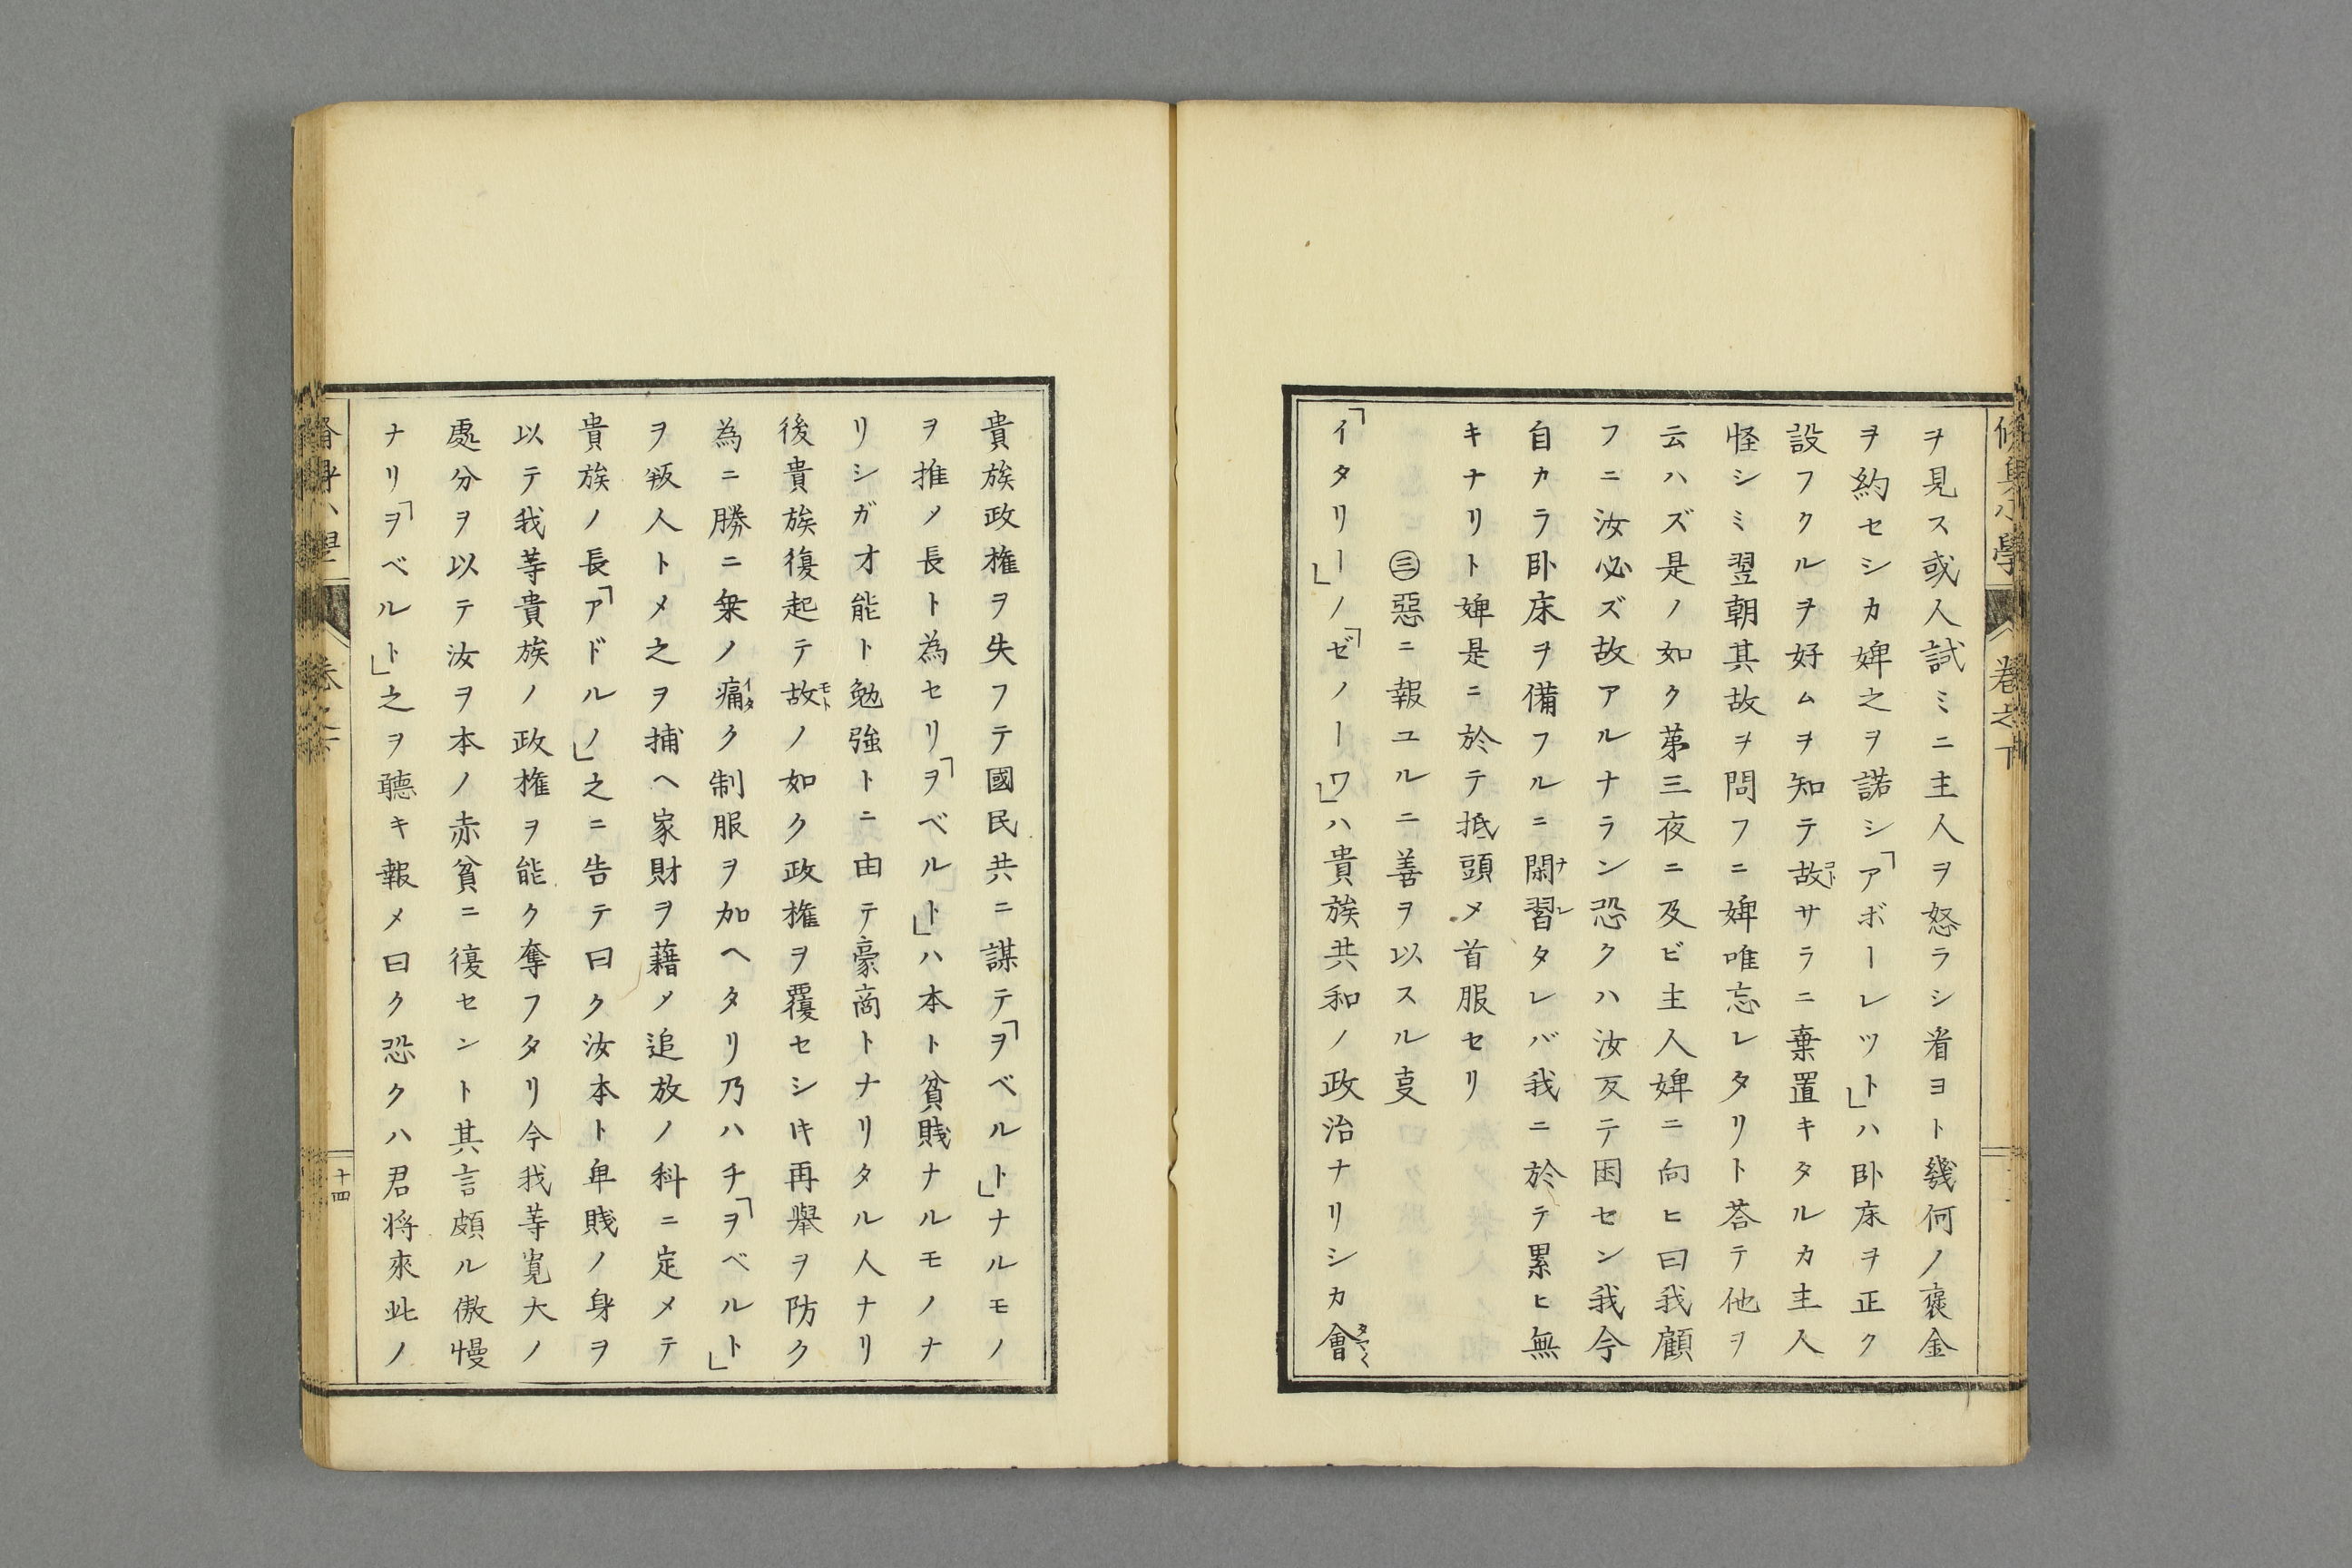 ヲ見ス或人試ミニ主人ヲ怒ラシ者ヨト幾何ノ褒金
ヲ約セシカ婢之ヲ諾シ「アボーレツト」ハ卧床ヲ正ク
設フクルヲ好ムヲ知テ故サラニ棄置キタルカ主人
怪シミ翌朝其故ヲ問フニ婢唯忘レタリト荅テ他ヲ
云ハズ是ノ如ク苐三夜ニ及ビ主人婢ニ向ヒ曰我顧
フニ汝必ズ故アルナラン恐クハ汝反テ困セン我今
自カラ卧床ヲ備フルニ閑習タレバ我ニ於テ累ヒ無
キナリト婢是ニ於テ抵頭メ首服セリ
㊂惡ニ報ユルニ善ヲ以スル叓
「イタリー」ノ「ゼノーワ」ハ貴族共和ノ政治ナリシカ會
貴族政権ヲ失フテ國民共ニ謀テ「ヲベルト」ナルモノ
ヲ推メ長ト為セリ「ヲベルト」ハ本ト貧賎ナルモノナ
リシガオ能ト勉強トニ由テ豪商トナリタル人ナリ
後貴族復起テ故ノ如ク政権ヲ覆セシ𪜈再舉ヲ防ク
為ニ勝ニ乗ノ痛ク制服ヲ加ヘタリ乃ハチ「ヲベルト」
ヲ叛人トメ之ヲ捕ヘ家財ヲ藉メ追放ノ科ニ定メテ
貴族ノ長「アドルノ」之ニ告テ曰ク汝本ト卑賎ノ身ヲ
以テ我等貴族ノ政権ヲ能ク奪フタリ今我等寛大ノ
處分ヲ以テ汝ヲ本ノ赤貧ニ復セント其言頗ル傲慢
ナリ「ヲベルト」之ヲ聽キ報メ曰ク恐クハ君将來此ノ
十四